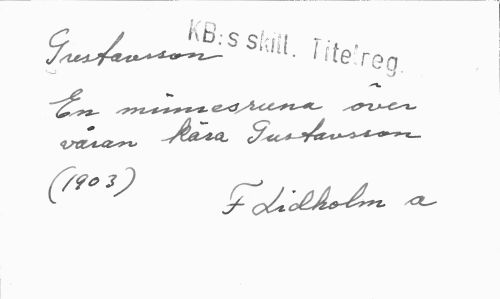 Gustavsson
KB:s skill. Titelreg.
En minnesruna över
våran kära Gustavsson
(1903)
F Lidholm a